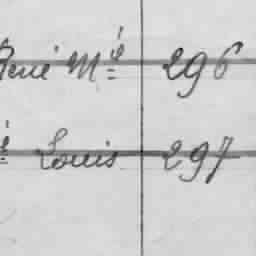 René Mie 296
Louis 297